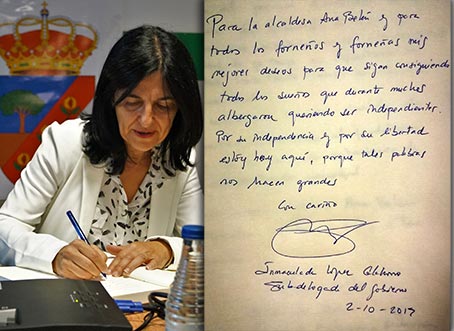 Para la alcaldesa Ana Belén y para
todos los forneños y forneñas mis
mejores deseos para que sigan consiguiendo
todos los sueños que durante muchos
albergaron queriendo ser independientes.
Por su independencia y por su libertad
estoy hoy aquí, porque tales palabras
nos hacen grandes
Con cariño
Inmaculada López
Subdelegada del Gobierno
2-10-2017